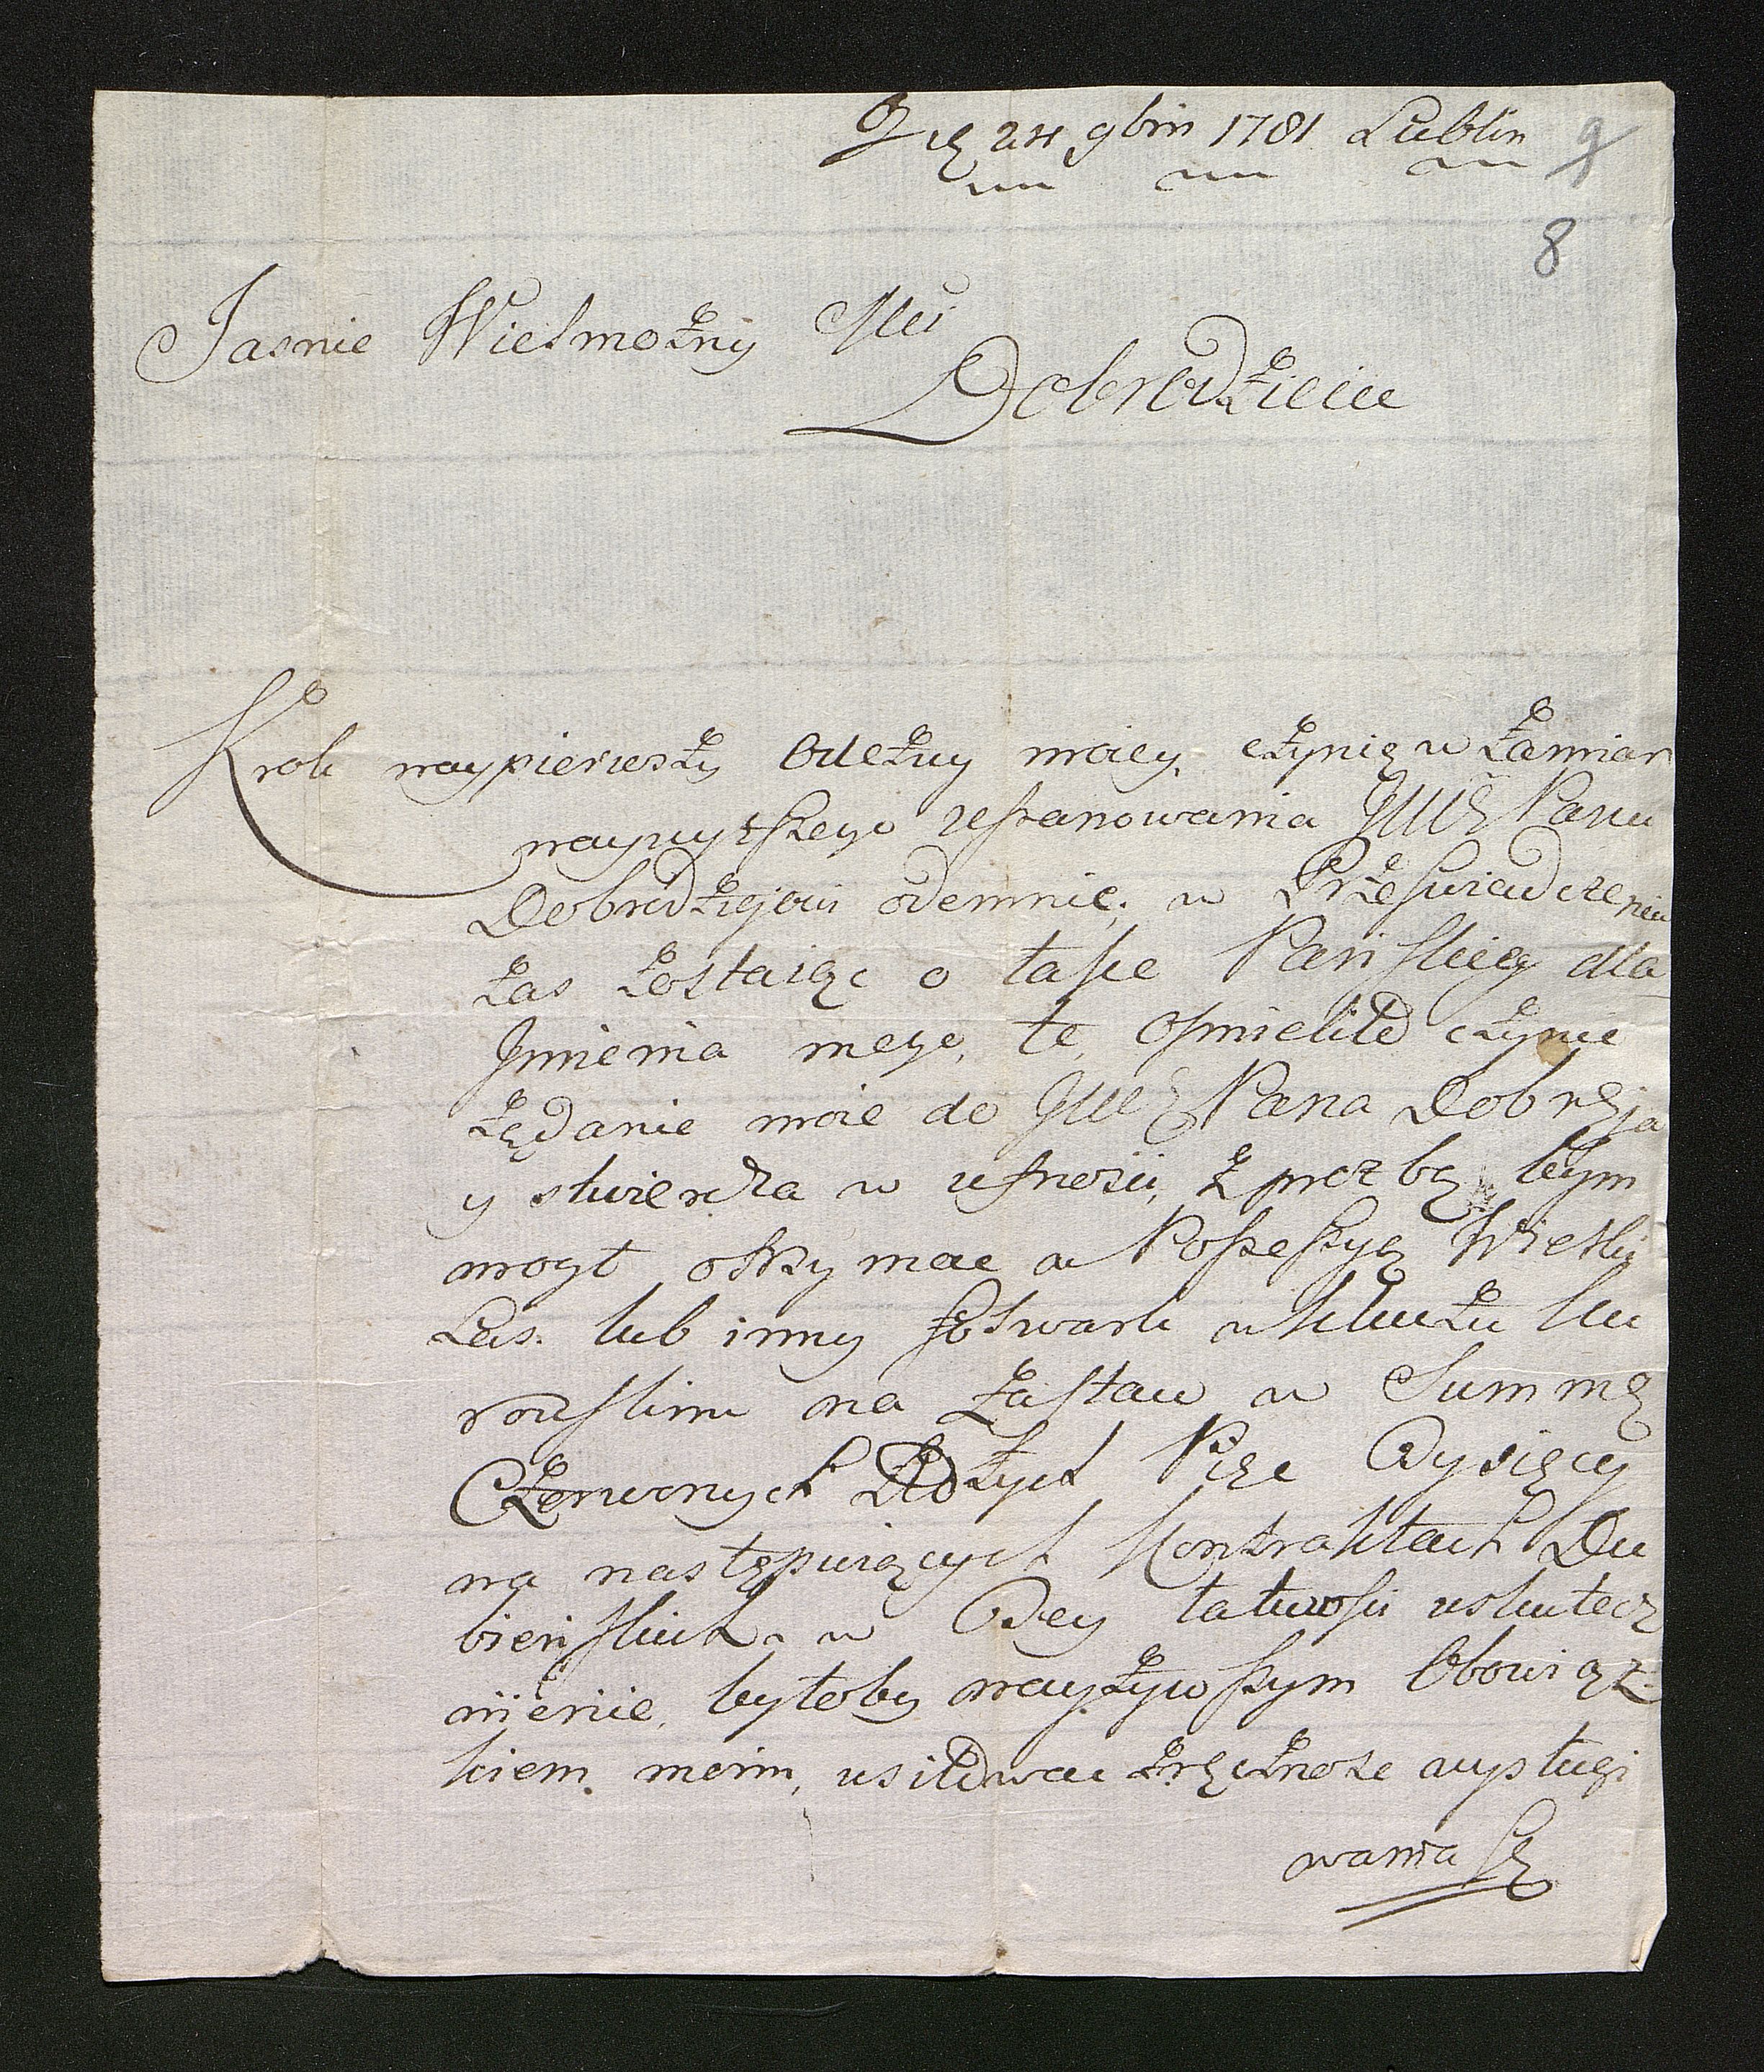 24 9bris 1781 Lublin
9
8
Jasnie Wielmożny Mci
Dobrodzieiu
Krok naypierwszy Odezwy moiey, czynię w zamiar
naywyższego uszanowania JWWMPanu
Dobrodziejowi odemnie, w Przeświadczeniu
zas zostaiąc o łasce Pańskiey dla
Jmienia mego, te, ośmielił czynic
żądanie moie do JWWMPana Dobrzja
y stwierdza w ufności, z prożbą, bym
mogł otrzymac w Possessyą Wielki
Las. lub inny folwark w kluczu Ku
rowskim na zastaw w Summę
Czerwonych Złotych Pięc Tysięcy
na następuiących Kontraktach Du
bieńskich. w Tey łatwości uskutecz
nienie, byłoby nayżywszym Obowiąz
kiem moim, usiłowac zręcznosc wysługi
wania Się